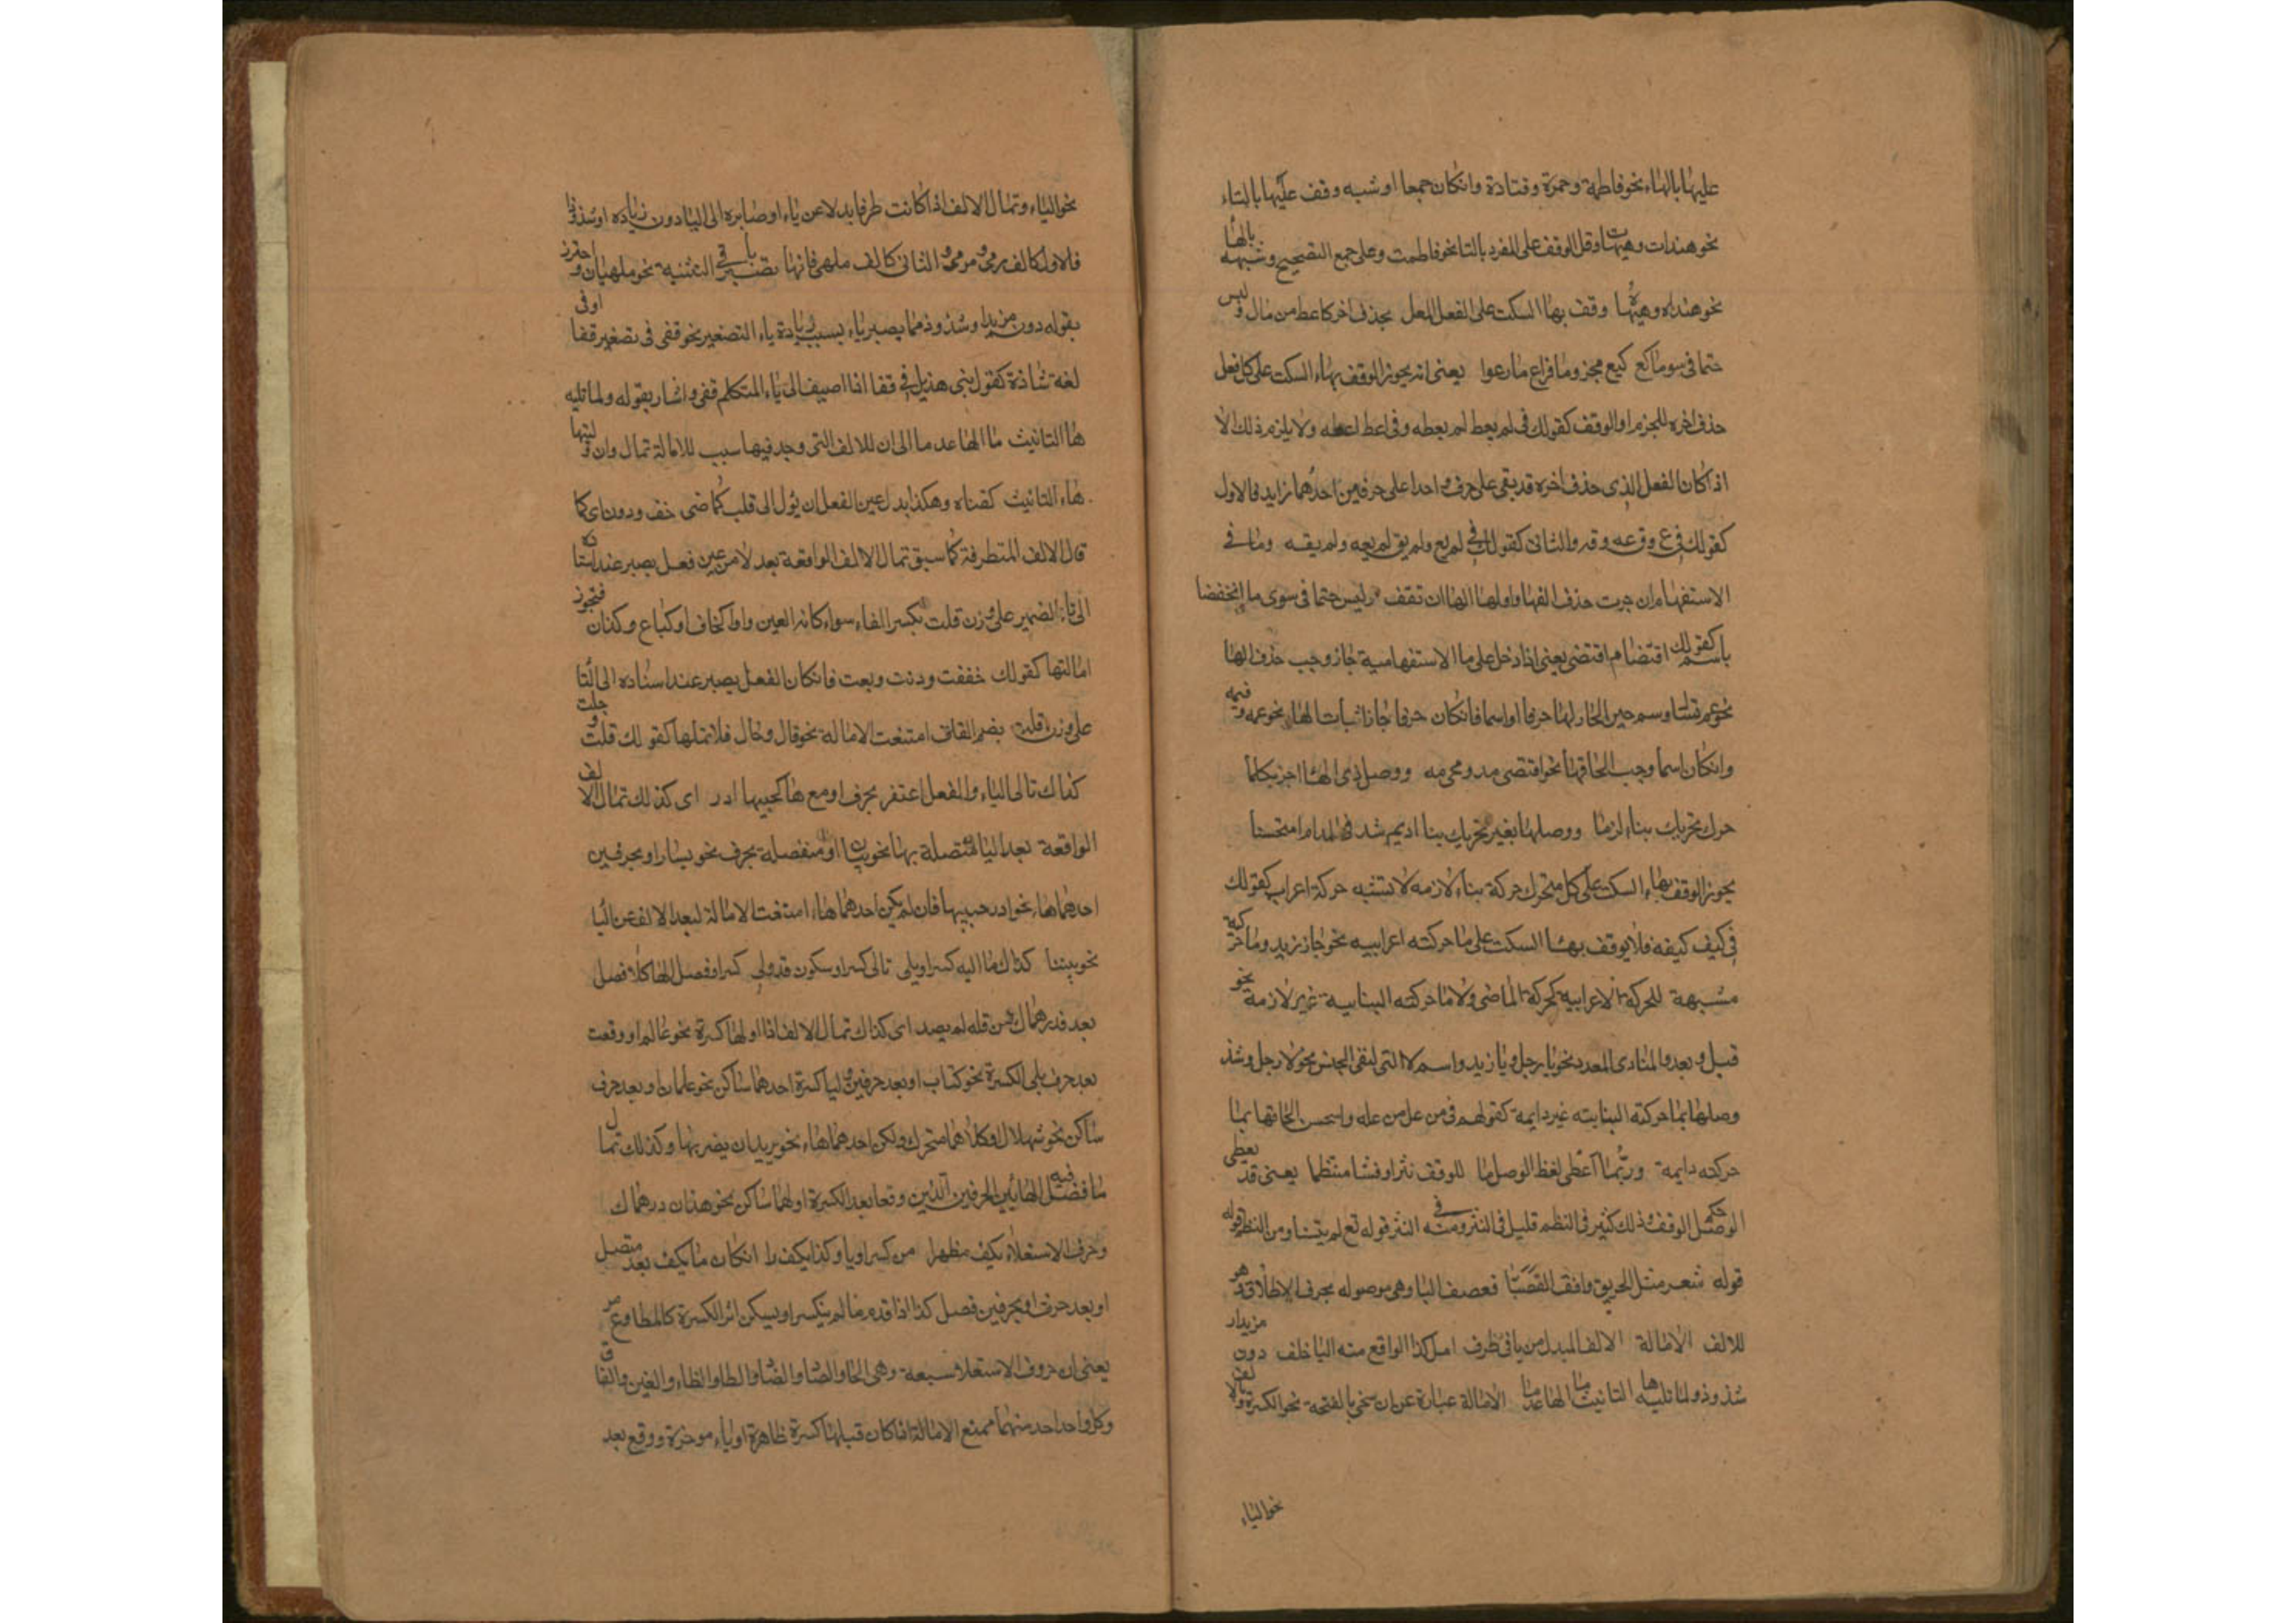 عليها بالهاء نحو فاطمة وحمزة وقتادة وانكان جمعا او شبه وقف عليها بالتاء
نحو هندات وهيهات وقل الوقف على المفرد بالتا نحو فاطمت وعلى جمع التصحيح وشبهه بالها
نحو هنداه وهيهاه وقف بها السكت على الفعل المعل بحذف اخر كاعط من سال وليس
حتما في سوى ما كع كيع مجزوما فراع ما رعوا يعنى انه يجوز الوقف بهاء السكت على كل فعل
حذف اخره للجزم او الوقف كقولك في لم يعط لم يعطه وفي اعط اعطه ولا يلزم ذلك الا
اذا كان الفعل الذى حذف اخره قد بقى على حرف واحد او على حرفين احدهما زايد فالاول
كقولك في ع وق عه وقه والثاني كقولك في لم يع ولم يق لم يعه ولم يقه وما في
الاستفهام ان جرت حذف الفها واولها الها ان تقف وليس حتما في سوى ما انخفضا
باسم كقولك اقتضام اقتضى يعنى اذا دخل على ما الاستفهامية جاز وجب حذف الفها
نحو عم تسال وسم حين الجار لها حرفا او اسما فانكان حرفا جاز اثبات الهاء نحو عمه وفيمه
وانكان اسما وجب الحاقها نحو اقتضى مه ومجى مه ووصل ذى الهاء اجز بكل ما
حرك تحريك بناء لزما ووصلها بغير تحريك بنا اديم شد في المدام استحسنا
يجوز الوقف بهاء السكت على كل متحرك حركة بناء لازمه لا تشبه حركة اعراب كقولك
في كيف كيفه فلا يوقف بها السكت على ما حركته اعرابيه نحو جاز زيد وما حركته
مشبهة للحركة الاعرابية كحركة الماضى ولا ما حركته البنايية غير لازمة نحو
قبل وبعد والمنادى المعدد نحو يا رجل ويا زيد واسم لا التى لنفى الجنس نحو لا رجل وشذ
وصلها بما حركته البنايته غير دايمة كقولهم في من عل من عله واسحسن الحاقها بما
حركته دايمة وربما اعطى لفظ الوصل ما للوقف نثرا وفشا منتظما يعنى قد يعطى
الوصل حكم الوقف وذلك كثير في النظم قليل في النثر ومنه في النثر قوله تع لم يتسنا ومن النظم قوله
قوله شعر مثل الحريق وافق القصبا فعصف البا وهى موصوله بحرف الاطلاق
للالف الامالة الالف المبدل من يا في طرف امل كذا الواقع منه اليا خلف دون مزيد او
شذوذ ولما تليه ها التانيث ما الها عدما الامالة عبارة عن ان ينحى بالفتحة نحو الكسرة وبالالف
نحو الياء
نحو الياء وتمال الالف اذا كانت طرفا بدلا عن ياء او صايره الى اليا دون زيادة او شذوذ
فالاول كالف رمى ومرمى والثاني كالف ملهى فانها تصير ياء في التثنية نحو ملهيان واحترز
بقوله دون مزيد او شذوذ مما يصير ياء بسبب زيادة ياء التصغير نحو قفى في تصغير قفا او في
لغة شاذة كقول بنى هذيل في قفا اذا اضيف الى ياء المتكلم قفى واشار بقوله ولما تليه
ها التانيث ما الها عدما الى ان للالف التى وجد فيها سبب للامالة تمال وان وليتها
هاء التانيث كفتاه وهكذا بدل عين الفعل ان يؤل الى قلت كماضى خف ودن اى كما
تمال الالف المتطرفة كما سبق تمال الالف الواقعة بعد لا من عين فعل يصير عند اسناده
الى تاء الضمير على وزن قلت بكسر الفاء سواء كانه العين واوا كخاف او كباع وكدان فتجوز
امالتها كقولك خفت ودنت وبعت فانكان الفعل يصير عند اسناده الى التا
على وزن قلت بضم القاف امتنعت الامالة نحو قال وجال فلا تملها كقولك قلت وجلت
كذاك تالى الياء والفعل اغتفر بحرف او مع ها كجيبها ادر اى كذلك تمال الالف
الواقعة بعد اليا متصلة بها نحو بيان او منفصلة بحرف نحو يسار او بحرفين
احدهما هاء نحو ادر جيبها فان لم يكن احدهما هاء امتنعت الامالة لبعد الالف عن اليا
نحو بيننا كذاك ما اليه كسر او يلى تالى كسر او سكون قد ولى كسرا وفصل الها كلا فصل
يعد فدرهماك من قله لم يصد اى كذاك تمال الالف اذا اولها كسرة نحو عالم او وقعت
بعد حرف يلى الكسرة نحو كتاب او بعد حرفين وليا كسرة احدهما ساكن نحو علمان او بعد حرف
ساكن نحو شملال او كلاهما متحرك ولكن احدهما هاء نحو يريد ان يضربها وكذلك تمال
ما فصل فيه الها بين الحرفين الذين وقعا بعد الكسرة اولهما ساكن نحو هذان درهماك
وحرف الاستعلاء يكف مظهرا من كسر او يا وكذا يكف را انكان ما يكف بعد متصل
او بعد حرف او بحرفين فصل كذا اذا قدم ما لم ينكسر او يسكن اثر الكسرة كالمطواع مر
يعنى ان حروف الاستعلا سبعة وهى الخا والصاد والضاد والطا والظاء والغين والقاف
وكل واحد احد منهما ممنع الامالة اذا كان قبلها كسرة ظاهرة او ياء موخرة ووقع بعد